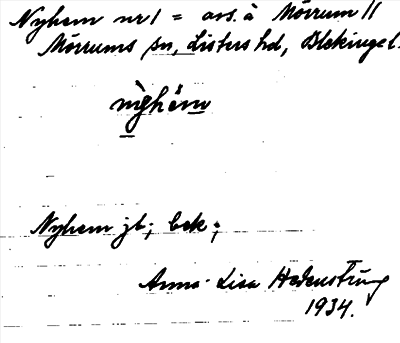 Nyhem nr 1 = avs. à Mörrum 11
Mörrums sn, Listers hd, Blekinge l.
nỳhèm
Nyhem jb; bek;
Anna-Lisa Hedenstrüg
1934.